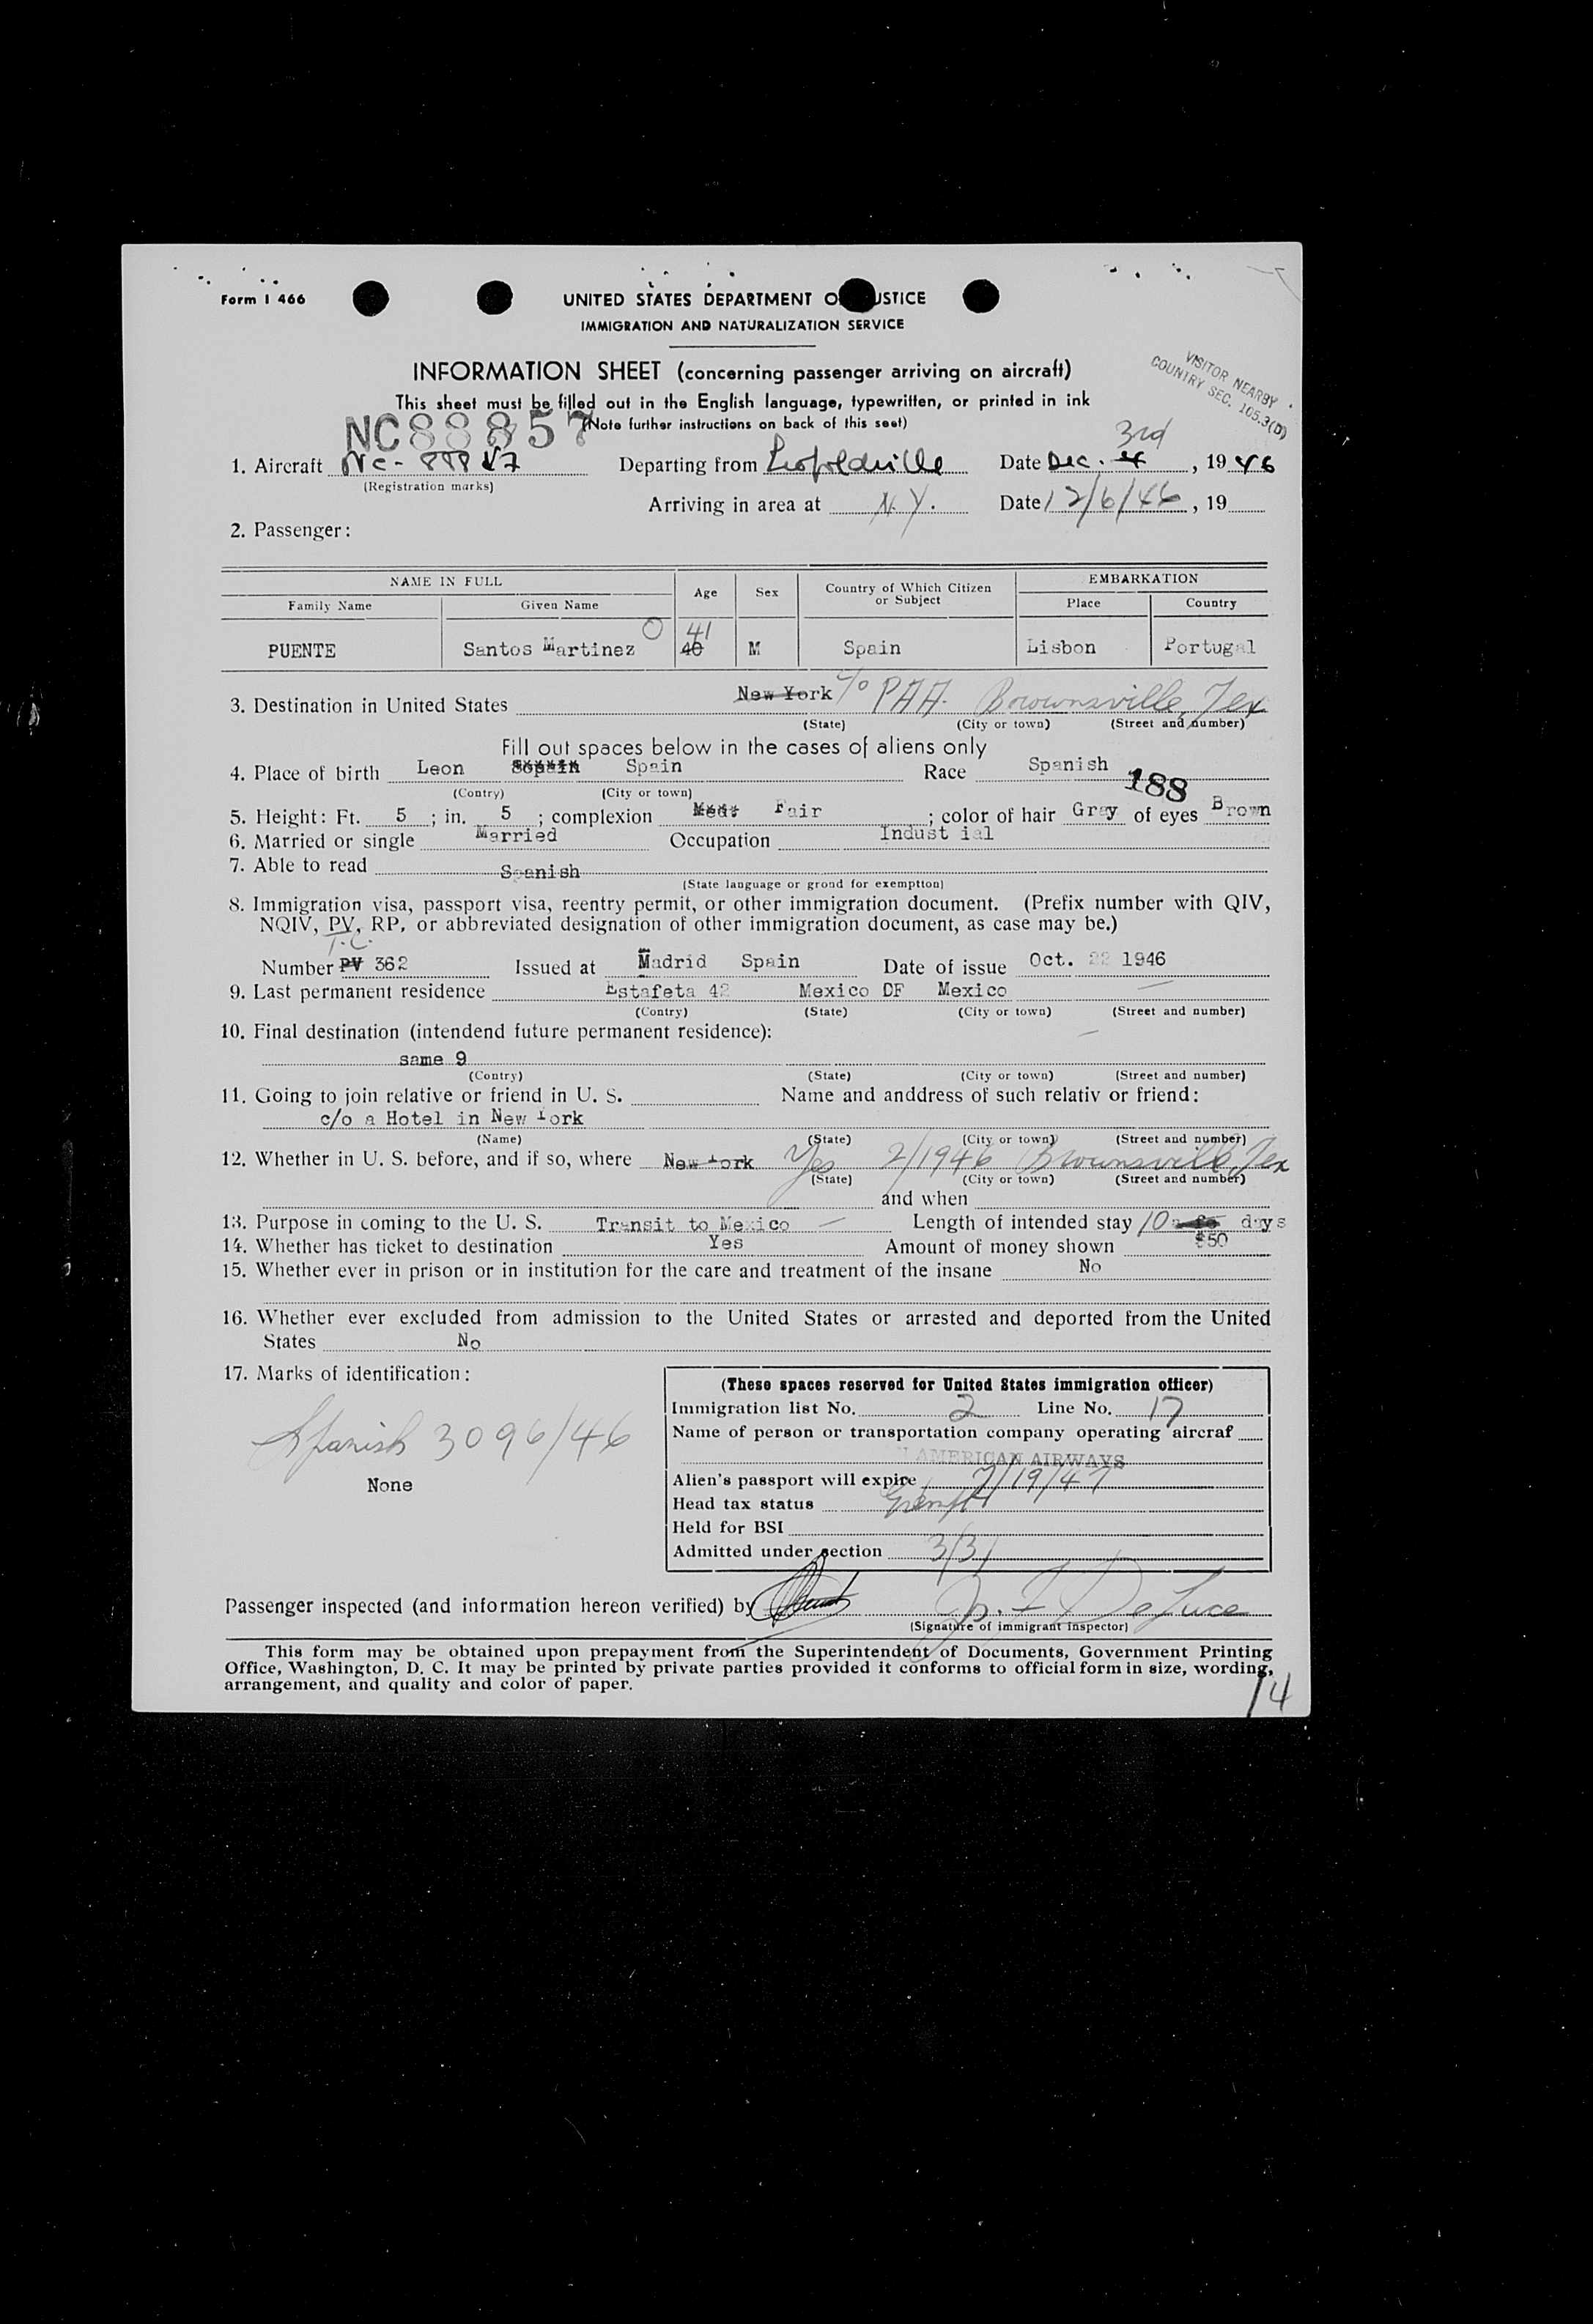 Form I 466
UNITED STATES DEPARTMENT O USTICE
IMMIGRATION AND NATURALIZATION SERVICE
INFORMATION SHEET (concerning passenger arriving on aircraft)
VISITOR NEARBY
COUNTRY SEC. 165.3(D)
This sheet must be filled out in the English language, typewritten, or printed in ink
NC88857
(Note further instructions on back of this seet)
1. Aircraft NC-88857 Departing from Leopoldville Date Dec. 4 3rd, 1946
(Registration marks)
Arriving in area at N.Y. Date 12/6/46, 19
2. Passenger:
NAME IN FULL Age Sex Country of Which Citizen or Subject EMBARKATION
Family Name Given Name Place Country
41
PUENTE Santos Martinez O 40 M Spain Lisbon Portugal
3. Destination in United States New York c/o PAA. Brownsville, Tex
(State) (City or town) (Street and number)
Fill out spaces below in the cases of aliens only
4. Place of birth Leon Spain Race Spanish
(Contry) (City or town)
188
5. Height: Ft. 5; in. 5; complexion Med: Fair; color of hair Gray of eyes Brown
6. Married or single Married Occupation Indust ial
7. Able to read Spanish
(State language or grond for exemption)
8. Immigration visa, passport visa, reentry permit, or other immigration document. (Prefix number with QIV,
NQIV, PV, RP, or abbreviated designation of other immigration document, as case may be.)
T.C.
Number PV 362 Issued at Madrid Spain Date of issue Oct. 22 1946
9. Last permanent residence Estafeta 42 Mexico DF Mexico
(Contry) (State) (City or town) (Street and number)
10. Final destination (intendend future permanent residence):
same 9
(Contry) (State) (City or town) (Street and number)
11. Going to join relative or friend in U. S. Name and anddress of such relativ or friend:
c/o a Hotel in New York
(Name) (State) (City or town) (Street and number)
12. Whether in U. S. before, and if so, where New York Yes 2/1946 Brownsville, Tex
(State) (City or town) (Street and number)
and when
13. Purpose in coming to the U. S. Transit to Mexico Length of intended stay 10 days
14. Whether has ticket to destination Yes Amount of money shown $50
15. Whether ever in prison or in institution for the care and treatment of the insane No
16. Whether ever excluded from admission to the United States or arrested and deported from the United
States No
17. Marks of identification:
Spanish 3096/46
None
(These spaces reserved for United States immigration officer)
Immigration list No. 2 Line No. 17
Name of person or transportation company operating aircraf
N AMERICAN AIRWAYS
Alien's passport will expire 7/19/47
Head tax status Exempt
Held for BSI
Admitted under section 3/3/
Passenger inspected (and information hereon verified) by De Luca
(Signature of immigrant inspector)
This form may be obtained upon prepayment from the Superintendent of Documents, Government Printing
Office, Washington, D. C. It may be printed by private parties provided it conforms to official form in size, wording,
arrangement, and quality and color of paper.
14